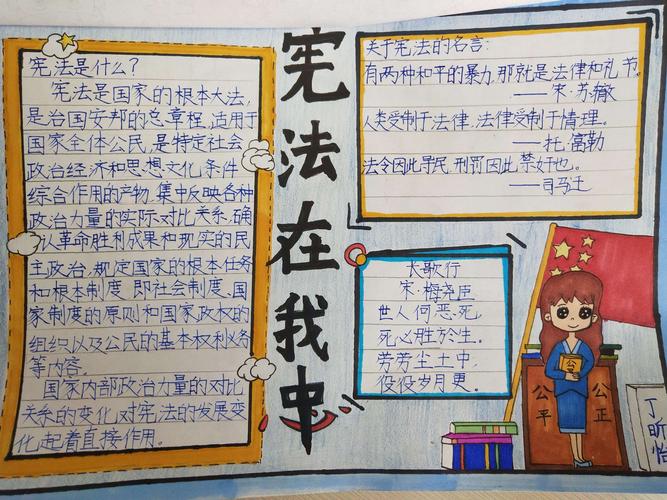 宪法是什么?
宪法是国家的根本大法,
是治国安邦的总章程,适用于
国家全体公民,是特定社会
政治经济和思想文化条件
综合作用的产物,集中反映各种
政治力量的实际对比关系,确
认革命胜利成果和现实的民
主政治,规定国家的根本任务
和根本制度,即社会制度、国
家制度的原则和国家政权的
组织以及公民的基本权利义务
等内容。
国家内部政治力量的对比
关系的变化,对宪法的发展变
化起着直接作用。
宪法在我中
关于宪法的名言:
有两种和平的暴力,那就是法律和礼节。
——宋·苏辙
人类受制于法律,法律受制于情理。
——托.高勒
法令因此导民,刑罚因此禁奸也。
——司马迁
长歌行
宋·梅尧臣
世人何恶死,
死必胜於生。
劳劳尘土中,
役役岁月更。
公平
公正
丁昕怡